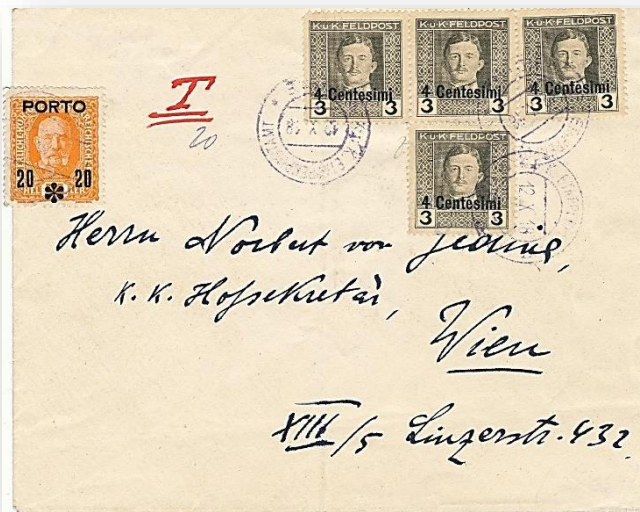 K.u.K. FELDPOST
4 Centesimi
3 3
K.u.K. FELDPOST
4 Centesimi
3 3
K.u.K. FELDPOST
4 Centesimi
3 3
PORTO
20 20
T
20
K.u.K. FELDPOST
4 Centesimi
3 3
Herrn Norbert von
K. K. Hofsekretär,
Wien
XIII/5 Linzerstr. 432